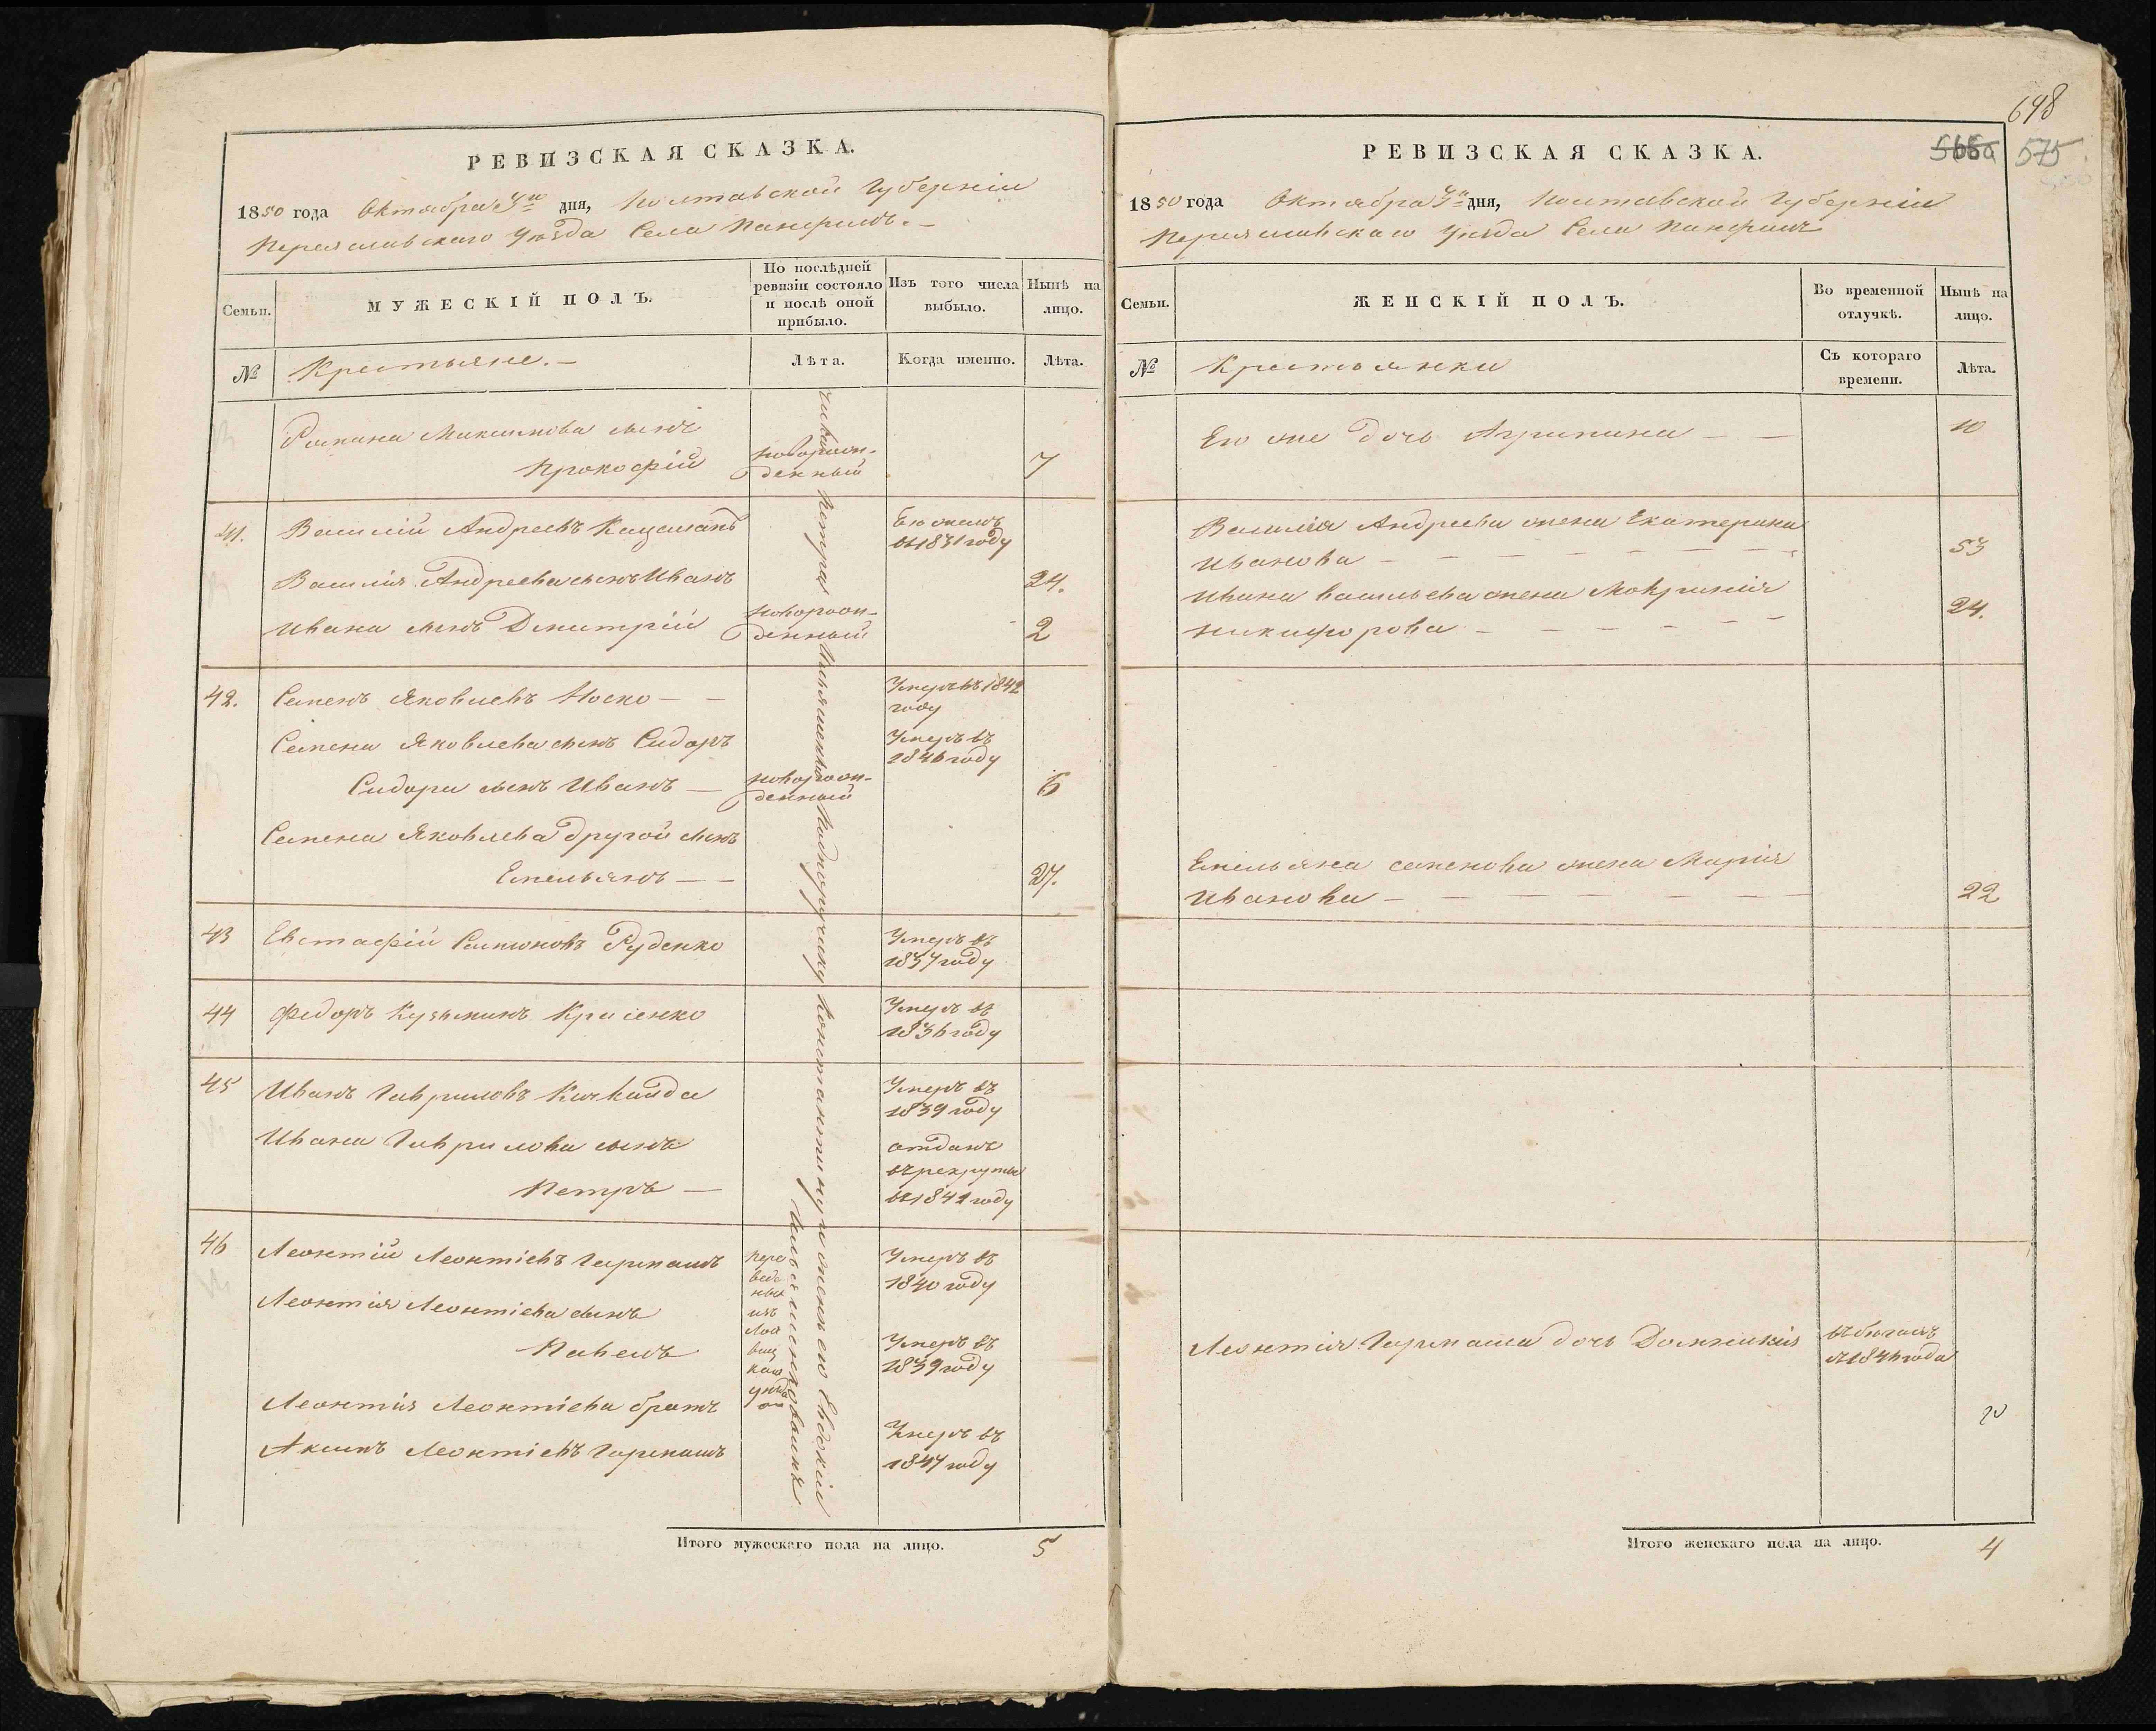 РЕВИЗСКАЯ СКАЗКА.
1850 года Октября дня, Полтавской Губерніи
Переяславскаго Уѣзда Села Панфилъ.
Семьи.
МУЖЕСКІЙ ПОЛЪ.
По послѣдней
ревизіи состояло
и послѣ оной
прибыло.
Изъ того числа
выбыло.
Нынѣ на
лицо.
№
Крестьяне.
Лѣта.
Когда именно.
Лѣта.
Романа Максимова сынъ
Прокофій
новорож-
денный
7
41.
Василій Андреевъ
въ 1831 году
Василія Андреева сынъ Иванъ
24.
Ивана сынъ Димитрій
новорож-
денный
2
42.
Семенъ Яковлевъ Носко
Умеръ въ 1842
году
Семена Яковлева сынъ Сидоръ
Умеръ въ
1846 году
Сидора сынъ Иванъ
новорож-
денный
6
Семена Яковлева другой сынъ
Емельянъ
27.
43
Евстафій Руденко
Умеръ въ
1837 году
44
Федоръ Кузьминъ
Умеръ въ
1836 году
45
Иванъ Гавриловъ
Умеръ въ
1839 году
Ивана Гаврилова сынъ
Петръ
отданъ
въ рекруты
въ 1841 году
46
Леонтій Леонтіевъ Гаркашъ
Умеръ въ
1840 году
Леонтія Леонтіева сынъ
Павелъ
Умеръ въ
1839 году
Леонтія Леонтіева братъ
Акимъ Леонтіевъ Гаркашъ
Умеръ въ
1847 году
Подпоручику Константину и женѣ его Евдокіи
Итого мужескаго пола на лицо.
5
698
566а 575
РЕВИЗСКАЯ СКАЗКА.
1850 года Октября дня, Полтавской Губерніи
Переяславскаго Уѣзда Села Панфилъ
Семьи.
ЖЕНСКІЙ ПОЛЪ.
Во временной
отлучкѣ.
Нынѣ на
лицо.
№
Крестьянки
Съ котораго
времени.
Лѣта.
Его же дочь Агрипина
10
Василія Андреева жена Екатерина
Иванова
53
Ивана Васильева жена
Никифорова
24.
Емельяна Семенова жена Марія
Иванова
22
Леонтія Гаркаша дочь Домникія
въ бѣгахъ
1846 года
20
Итого женскаго пола на лицо.
4